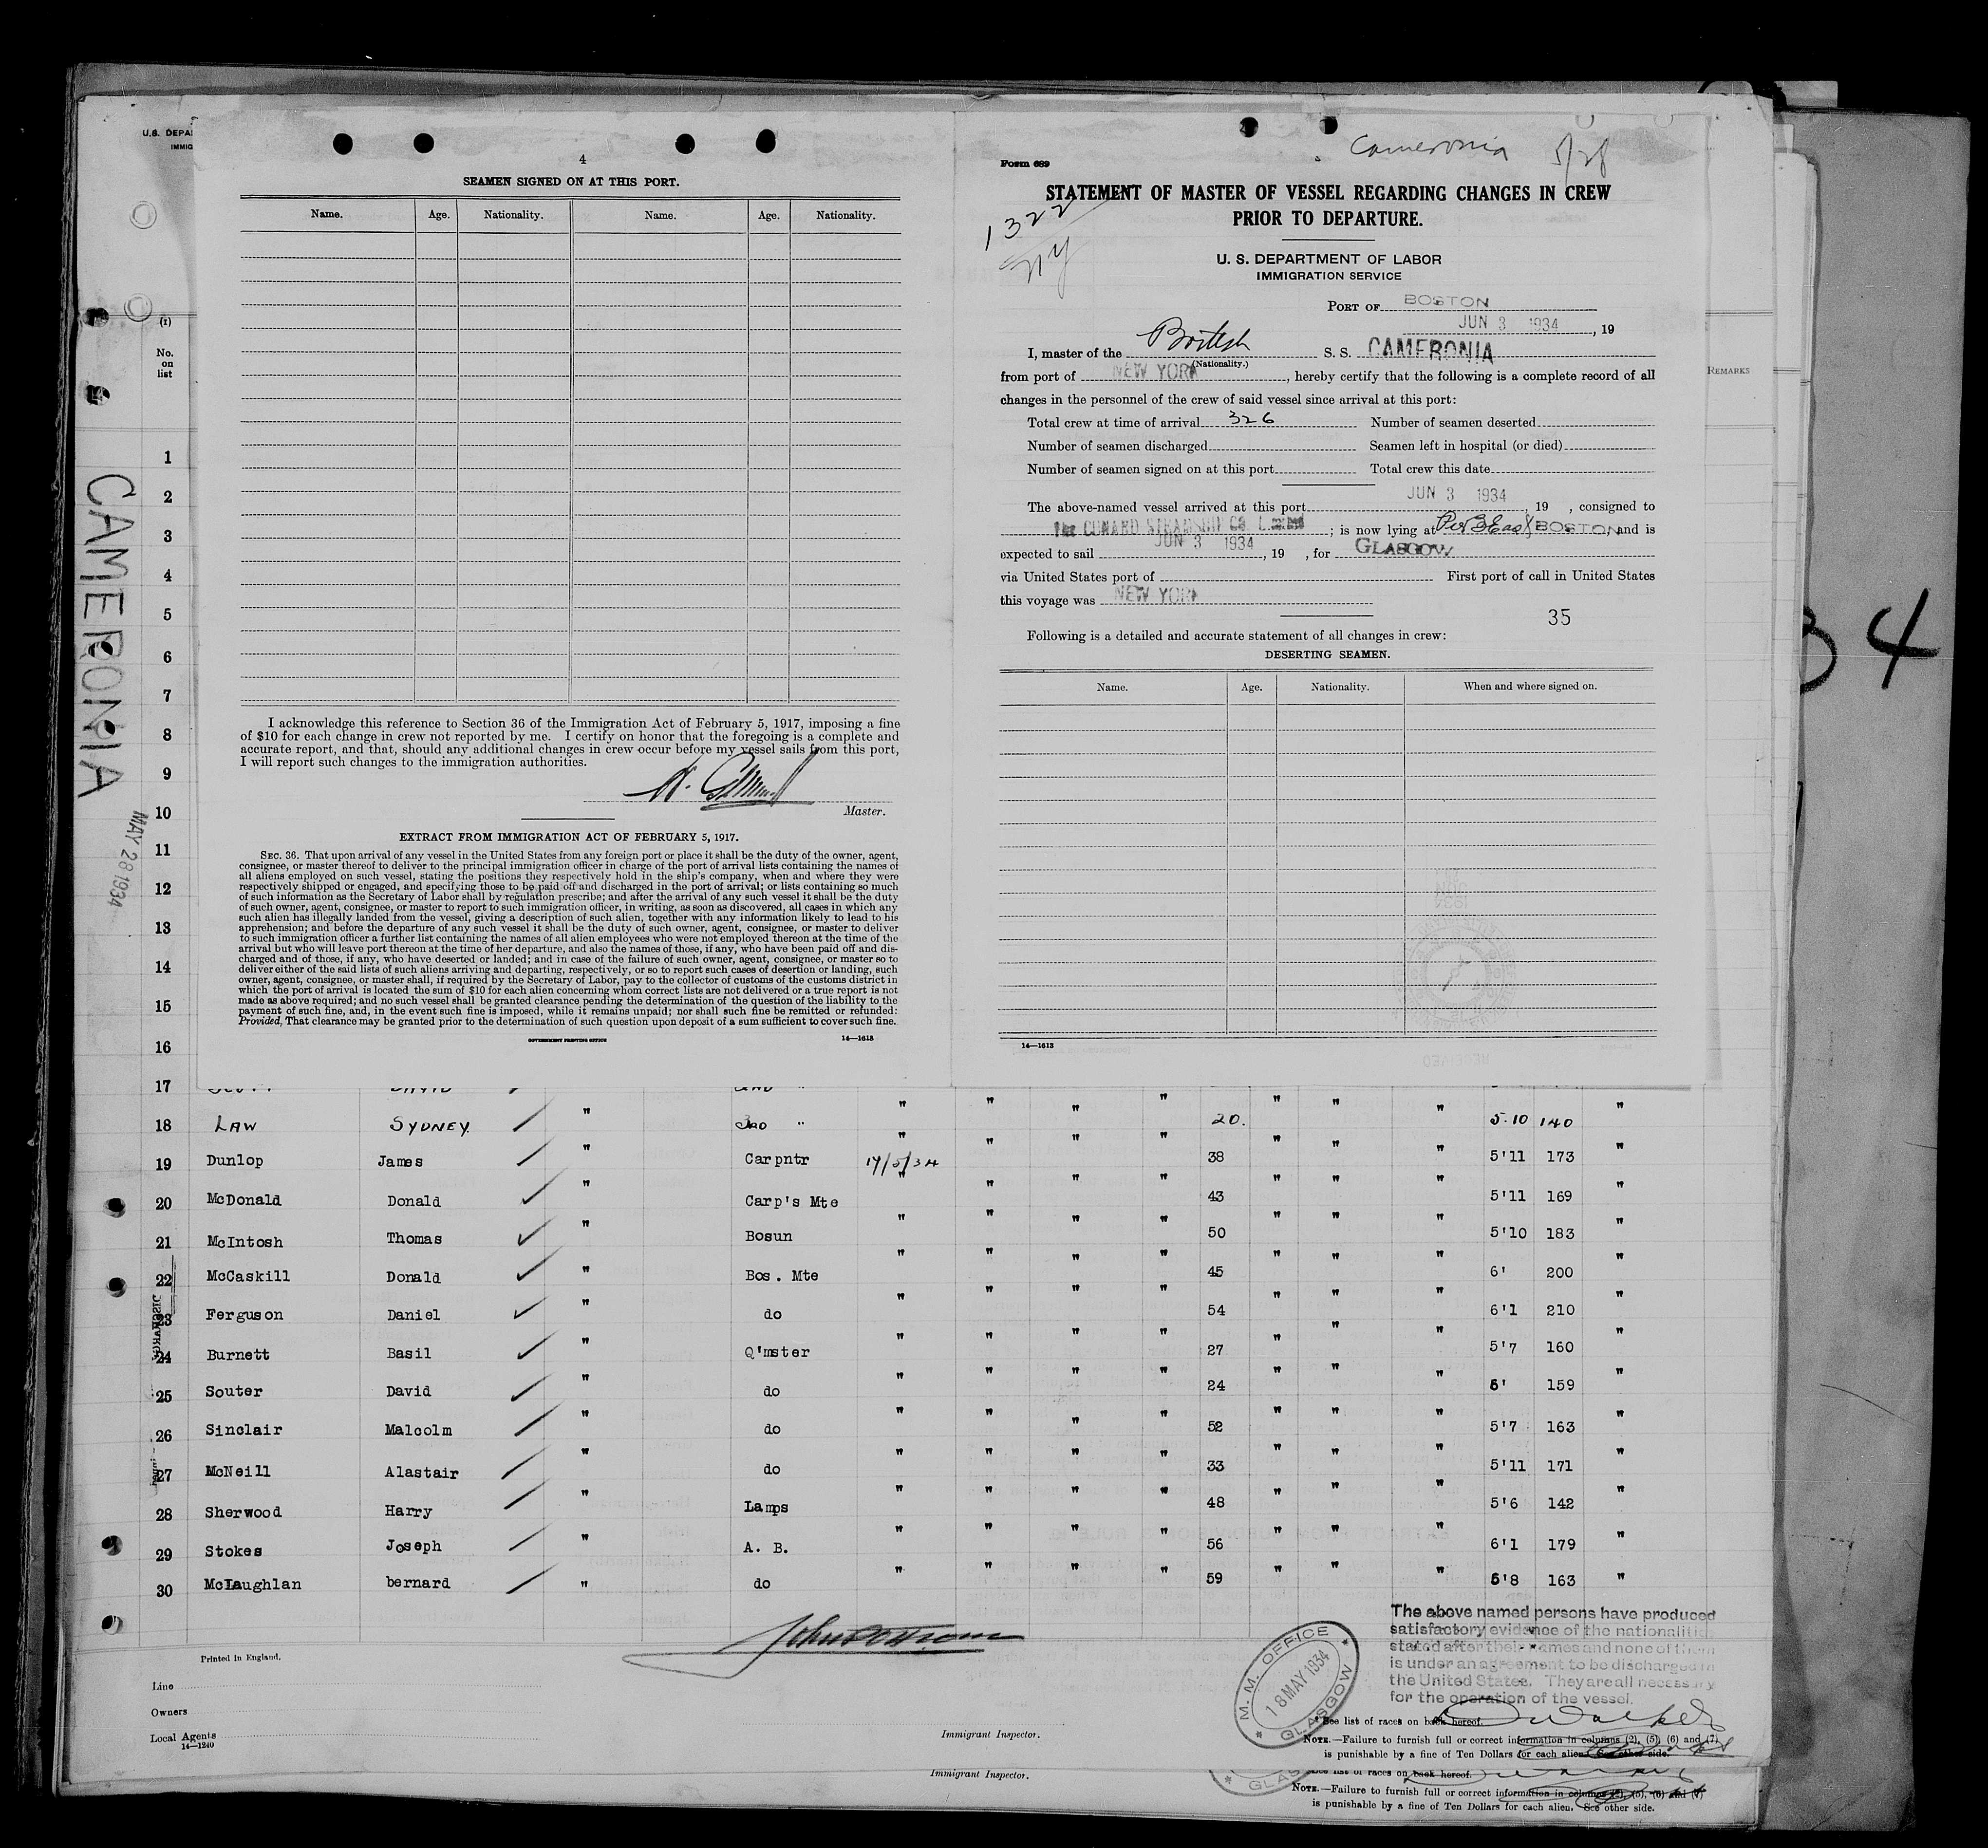 U.S. DEPA
IMMIG
4
SEAMEN SIGNED ON AT THIS PORT.
Name. Age. Nationality. Name. Age. Nationality.
I acknowledge this reference to Section 36 of the Immigration Act of February 5, 1917, imposing a fine
of $10 for each change in crew not reported by me. I certify on honor that the foregoing is a complete and
accurate report, and that, should any additional changes in crew occur before my vessel sails from this port,
I will report such changes to the immigration authorities.
Master.
EXTRACT FROM IMMIGRATION ACT OF FEBRUARY 5, 1917.
SEC. 36. That upon arrival of any vessel in the United States from any foreign port or place it shall be the duty of the owner, agent,
consignee, or master thereof to deliver to the principal immigration officer in charge of the port of arrival lists containing the names of
all aliens employed on such vessel, stating the positions they respectively hold in the ship's company, when and where they were
respectively shipped or engaged, and specifying those to be paid off and discharged in the port of arrival; or lists containing so much
of such information as the Secretary of Labor shall by regulation prescribe; and after the arrival of any such vessel it shall be the duty
of such owner, agent, consignee, or master to report to such immigration officer, in writing, as soon as discovered, all cases in which any
such alien has illegally landed from the vessel, giving a description of such alien, together with any information likely to lead to his
apprehension; and before the departure of any such vessel it shall be the duty of such owner, agent, consignee, or master to deliver
to such immigration officer a further list containing the names of all alien employees who were not employed thereon at the time of the
arrival but who will leave port thereon at the time of her departure, and also the names of those, if any, who have been paid off and dis-
charged and of those, if any, who have deserted or landed; and in case of the failure of such owner, agent, consignee, or master so to
deliver either of the said lists of such aliens arriving and departing, respectively, or so to report such cases of desertion or landing, such
owner, agent, consignee, or master shall, if required by the Secretary of Labor, pay to the collector of customs of the customs district in
which the port of arrival is located the sum of $10 for each alien concerning whom correct lists are not delivered or a true report is not
made as above required; and no such vessel shall be granted clearance pending the determination of the question of the liability to the
payment of such fine, and, in the event such fine is imposed, while it remains unpaid; nor shall such fine be remitted or refunded:
Provided, That clearance may be granted prior to the determination of such question upon deposit of a sum sufficient to cover such fine.
GOVERNMENT PRINTING OFFICE 14—1613
Cameronia 5/28
Form 689
STATEMENT OF MASTER OF VESSEL REGARDING CHANGES IN CREW
PRIOR TO DEPARTURE.
1322
NY
U. S. DEPARTMENT OF LABOR
IMMIGRATION SERVICE
PORT OF BOSTON
JUN 3 1934, 19
I, master of the British S. S. CAMERONIA
(Nationality.)
from port of NEW YORK, hereby certify that the following is a complete record of all
changes in the personnel of the crew of said vessel since arrival at this port:
Total crew at time of arrival 326 Number of seamen deserted
Number of seamen discharged Seamen left in hospital (or died)
Number of seamen signed on at this port Total crew this date
The above-named vessel arrived at this port JUN 3 1934, 19 , consigned to
The CUNARD STEAMSHIP Co. Limited; is now lying at BOSTON, and is
expected to sail JUN 3 1934, 19 , for GLASGOW
via United States port of First port of call in United States
this voyage was NEW YORK
35
Following is a detailed and accurate statement of all changes in crew:
DESERTING SEAMEN.
Name. Age. Nationality. When and where signed on.
14—1613
REMARKS
34
(1)
No.
on
list
CAMERONIA
MAY 28 1934
1
2
3
4
5
6
7
8
9
10
11
12
13
14
15
16
17
18 LAW SYDNEY " 3RD " " " " " 20. " " " 5.10 140 "
19 Dunlop James " Carpntr 17/5/34 " " " " 38 " " " 5'11 173 "
20 McDonald Donald " Carp's Mte " " " " 43 " " " 5'11 169 "
21 McIntosh Thomas " Bosun " " " " 50 " " " 5'10 183 "
22 McCaskill Donald " Bos. Mte " " " " 45 " " " 6' 200 "
23 Ferguson Daniel " do " " " " 54 " " " 6'1 210 "
24 Burnett Basil " Q'mster " " " " 27 " " " 5'7 160 "
25 Souter David " do " " " " 24 " " " 6' 159 "
26 Sinclair Malcolm " do " " " " 52 " " " 5'7 163 "
27 McNeill Alastair " do " " " " 33 " " " 5'11 171 "
28 Sherwood Harry " Lamps " " " " 48 " " " 5'6 142 "
29 Stokes Joseph " A. B. " " " " 56 " " " 6'1 179 "
30 McLaughlan bernard " do " " " " 59 " " " 5'8 163 "
Printed in England.
Line
Owners
Local Agents
14—1240
Immigrant Inspector.
M. M. OFFICE
18 MAY 1934
GLASGOW
The above named persons have produced
satisfactory evidence of the nationalities
stated after their names and none of them
is under an agreement to be discharged in
the United States. They are all necessary
for the operation of the vessel.
* See list of races on back hereof.
NOTE.—Failure to furnish full or correct information in columns (2), (5), (6) and (7)
is punishable by a fine of Ten Dollars for each alien. See other side.
Immigrant Inspector.
See list of races on back hereof.
NOTE.—Failure to furnish full or correct information in columns (2), (5), (6) and (7)
is punishable by a fine of Ten Dollars for each alien. See other side.